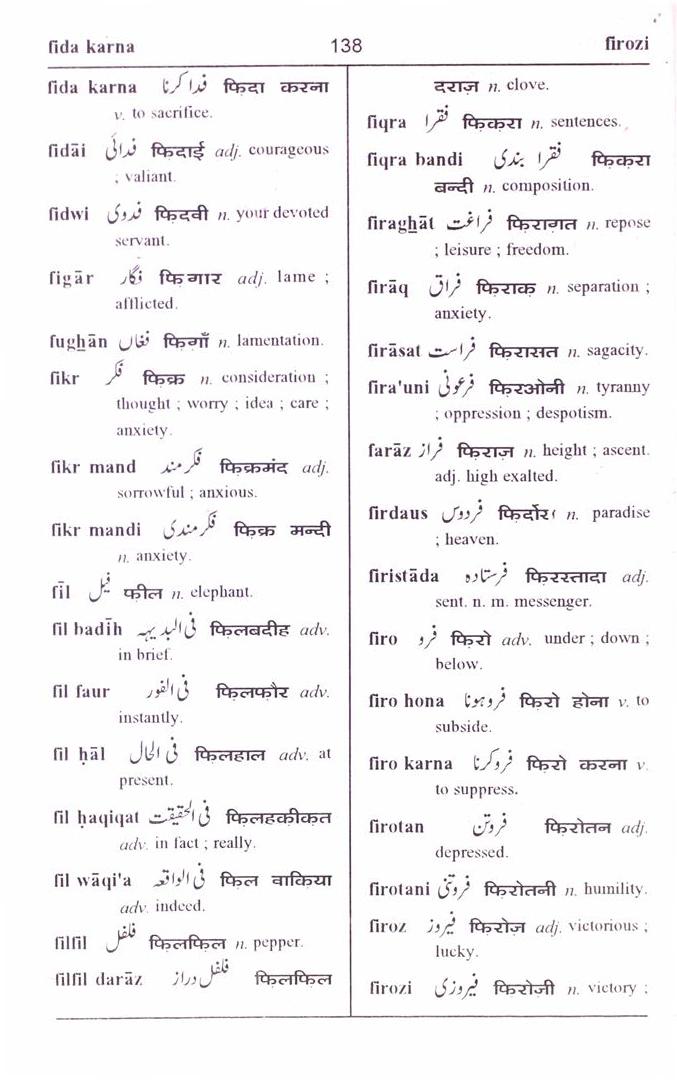 fida karna 138 firozi
fida karna فدا کرنا फिदा करना
v. to sacrifice.
fidāi فدائی फिदाई adj. courageous
; valiant.
fidwi فدوی फिदवी n. your devoted
servant.
figār فگار फिगार adj. lame ;
afflicted.
fughān فغاں फिगाँ n. lamentation.
fikr فکر फिक्र n. consideration ;
thought ; worry ; idea ; care ;
anxiety.
fikr mand فکر مند फिक्रमंद adj.
sorrowful ; anxious.
fikr mandi فکر مندی फिक्र मन्दी
n. anxiety.
fīl فیل फील n. elephant.
fil badīh فی البدیہہ फिलबदीह adv.
in brief.
fil faur فی الفور फिलफौर adv.
instantly.
fil ḥāl فی الحال फिलहाल adv. at
present.
fil ḥaqiqat فی الحقیقت फिलहकीकत
adv. in fact ; really.
fil wāqi'a فی الواقعہ फिल वाकिया
adv. indeed.
filfil فلفل फिलफिल n. pepper.
filfil darāz فلفل دراز फिलफिल
दराज़ n. clove.
fiqra فقرا फिकरा n. sentences.
fiqra bandi فقرا بندی फिकरा
बन्दी n. composition.
firaghāt فراغت फिरागत n. repose
; leisure ; freedom.
firāq فراق फिराक n. separation ;
anxiety.
firāsat فراست फिरासत n. sagacity.
fira'uni فرعونی फिरओनी n. tyranny
; oppression ; despotism.
farāz فراز फिराज़ n. height ; ascent.
adj. high exalted.
firdaus فردوس n. paradise
; heaven.
firistāda فرستادہ फिररतादा adj.
sent. n. m. messenger.
firo فرو फिरो adv. under ; down ;
below.
firo hona فرو ہونا फिरो होना v. to
subside.
firo karna فرو کرنا फिरो करना v.
to suppress.
firotan فروتن फिरोतन adj.
depressed.
firotani فروتنی फिरोतनी n. humility.
firoz فیروز फिरोज़ adj. victorious ;
lucky.
firozi فیروزی फिरोज़ी n. victory ;